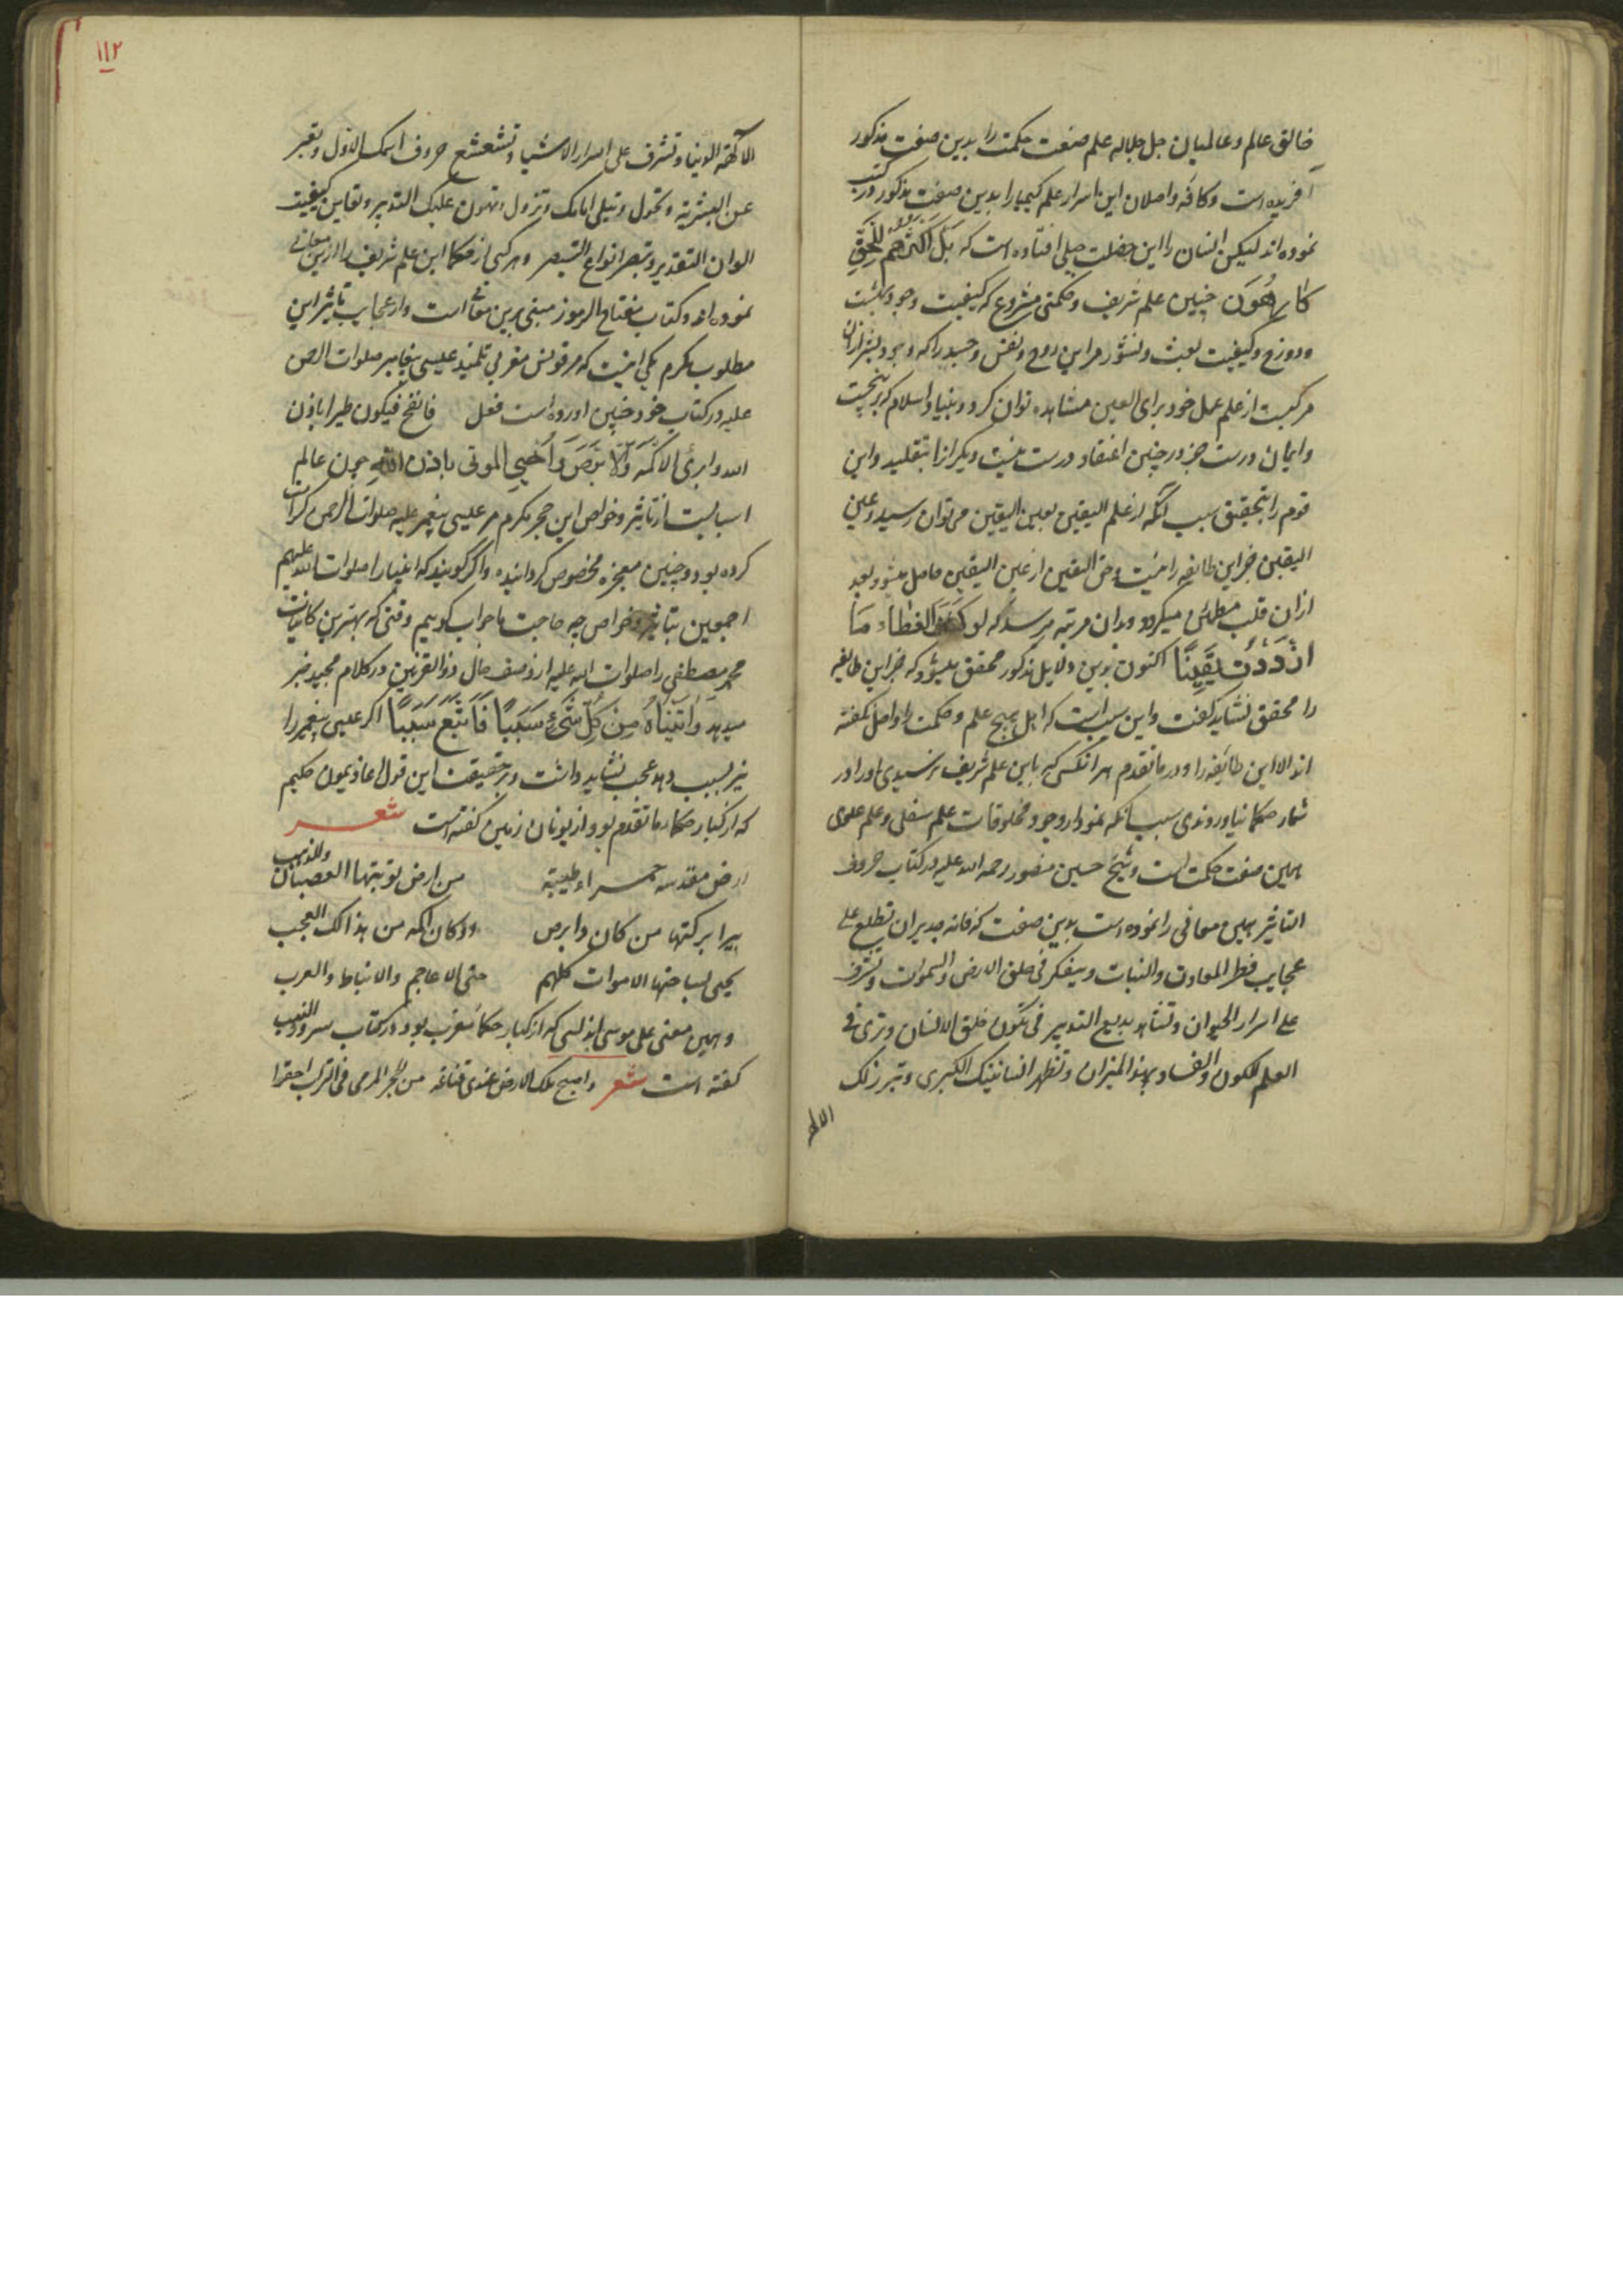 خالق عالم و عالمیان جل جلاله علم صنعت حکمت را بدین صفت مذکور
آفریده است و کافه واصلان این اسرار علم کیمیا را بدین صفت مذکور در کتب
نموده اند لیکن انسان را این خصلت جبلی افتاده است که بَل اَکثَرُهُم لِلحَقِّ
کَارِهُونَ چنین علم شریف و حکمتی مشروع که کیفیت وجود بهشت
و دوزخ و کیفیت بعث و نشور مر این روح و نفس و جسد را که
از علم عمل خود برای العین مشاهده توان کرد و بنیاد اسلام که
و ایمان درست جز در چنین اعتقاد درست نیست دیگرانرا بتقلید و این
قوم را بتحقیق سبب آنکه از علم الیقین بعین الیقین می توان رسید و عین
الیقین جز این طایفه را نیست و حق الیقین از عین الیقین حاصل میشود بعد
ازان قلب مطمئن میکردد و بدان مرتبه میرسد که لو کُشِفَ الغطاء مَا
ازدَدتُ یَقِینًا اکنون بدین دلایل مذکور محقق میشود که جز این طایفه
را محقق نشاید کفت و این سبب است که اهل هیچ علم و حکمت را واصل نکفته
اند الا این طایفه را و در ما تقدم هر آنکسی که باین علم شریف نرسیدی او را در
شمار حکما نیاوردندی سبب آنکه نمودار وجود مخلوقات علم سفلی و علم علوی
همین صنعت حکمت است و شیخ حسین منصور رحمه الله علیه در کتاب حروف
التاثیر همین معانی را نموده است بدین صفت که فانه جدیر ان تطلع علی
عجایب فطر المعادن والنبات و یتفکر فی خلق الارض والسموات و تشرف
علی اسرار الحیوان و تشاهد بدیع التدبیر فی تکون خلق الانسان و تری فی
العلم الکون والفساد بهذا المیزان و تظهر انسانیتک الکبری و تبرز لک
۱۱۲
و تشرف علی اسرار الاشیا و تشعشع حروف اسمک الاول و تعبر
عن البشریة و تحول و تبلی انامک و تزول و تهون علیک التدبیر و تعاین کیفیت
الوان التقدیر و تبصر انواع التبصیر و هر کسی از حکما این علم شریف را ازین معانی
نموده اند و کتاب مفتاح الرموز مبنی برین معانی است و از عجایب تاثیر این
مطلوب مکرم یکی اینست که مرقونس مغربی تلمیذ عیسی پیغامبر صلوات الرحمن
علیه در کتاب خود چنین اورده است فعل فانفخ فیکون طیرا باذن
الله و ابرئ الاکمَهَ وَالاَبرَصَ وَاُحیِی الموتی باذن اللهِ چون عالم
اسبابیست از تاثیر و خواص این حجر مکرم مر عیسی پیغمبر علیه صلوات الرحمن کرامت
کرده بود و چنین معجزه مخصوص کردانیده و اکر کویند که انبیا را صلوات الله علیهم
اجمعین بتاثیر و خواص چه حاجت ما جواب کوییم وقتی که بهترین کاینات
محمد مصطفی را صلوات الله علیه از وصف حال ذوالقرنین در کلام مجید خبر
میدهد وَاٰتَینَاهُ مِن کُلِّ شَیءٍ سَبَبًا فَاَتبَعَ سَبَبًا اکر عیسی پیغمبر را
نیز بسبب دهد عجب نشاید دانست و بر حقیقت این قول اغاذیمون حکیم
که از کبار حکماء ما تقدم بود از یونان زمین کفته است شعر
ارض مقدسه حمراء طیبة من ارض توبتها العصیان والذهب
یبرا ببرکتها من کان ذا برص او کان اکمه من هذا لک العجب
یحیی بساحتها الاموات کلهم حتی الاعاجم والانباط والعرب
و همین معنی علی موسی اندلسی که از کبار حکماء مغرب بود در کتاب
کفته است شعر و اصبح ملک الارض عندی قناعة من الحجر المرمی فی الترب احقرا